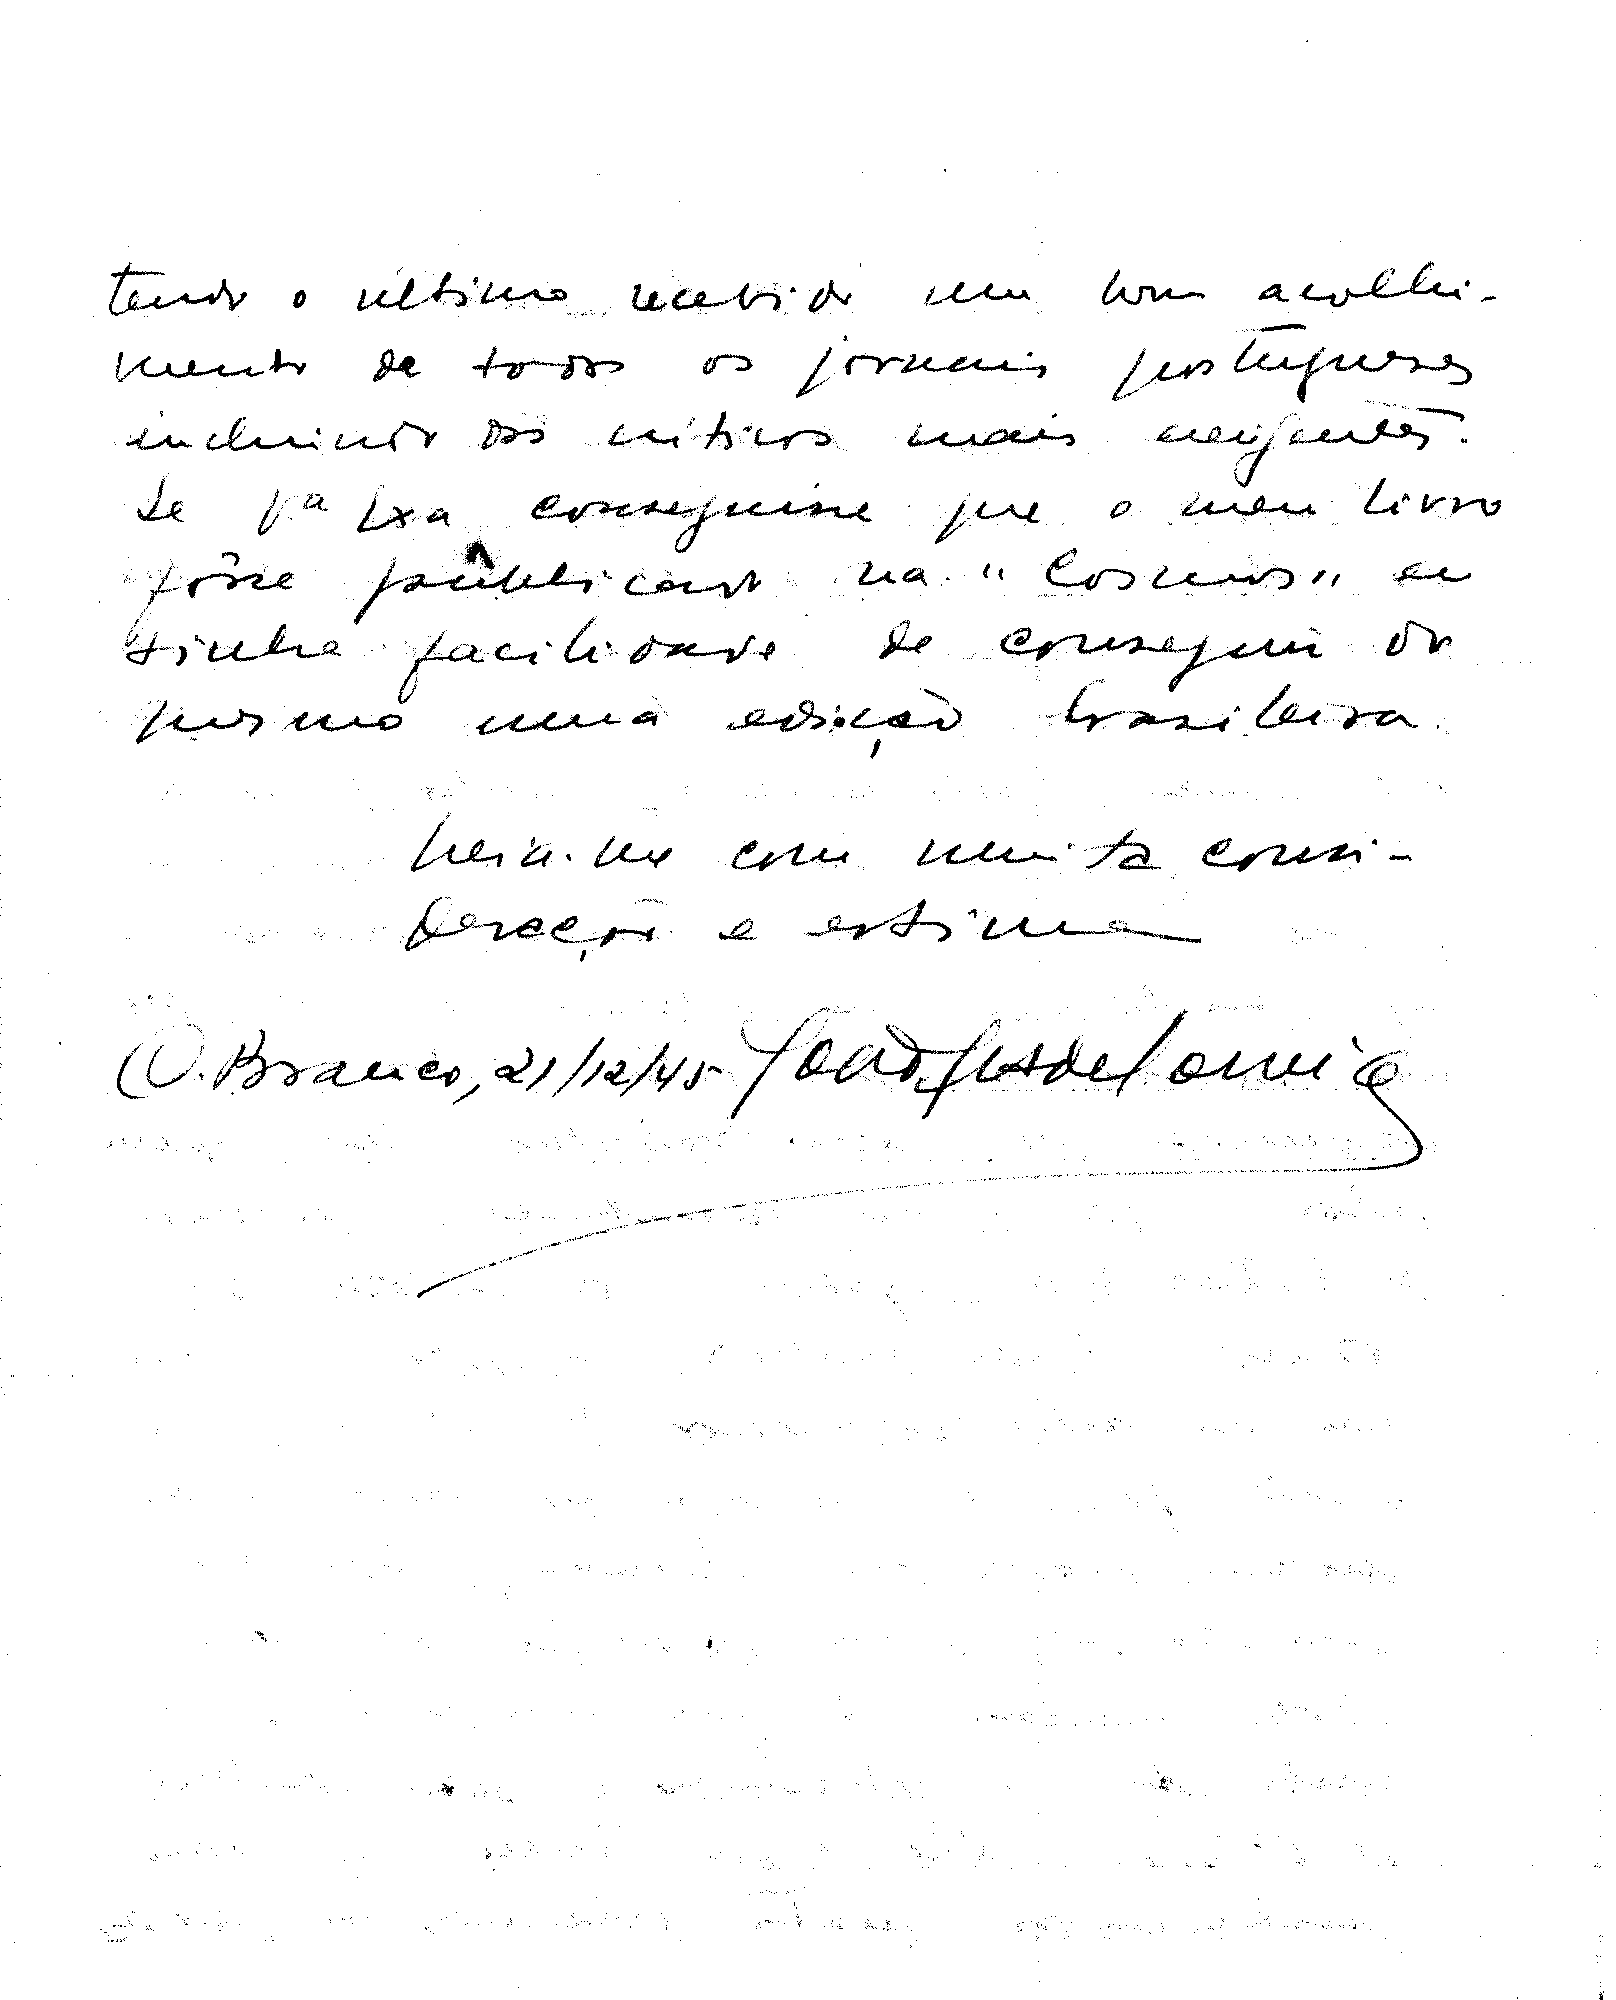 tendo o último recebido um bom acolhi-
mento de todos os jornais portugueses
incluindo dos críticos mais exigentes.
Se Vª Exa conseguisse que o meu livro
fôsse publicado na "Cosmos" eu
tinha facilidade de conseguir do
mesmo uma edição brasileira.
Creia-me com muita consi-
deração e estima
C. Branco, 21/12/45 João de